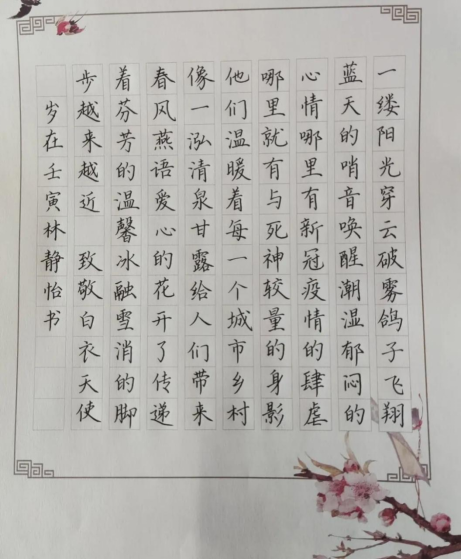 一缕阳光穿云破雾鸽子飞翔
蓝天的哨音唤醒潮湿郁闷的
心情哪里有新冠疫情的肆虐
哪里就有与死神较量的身影
他们温暖着每一个城市乡村
像一泓清泉甘露给人们带来
春风燕语爱心的花开了传递
着芬芳的温馨冰融雪消的脚
步越来越近 致敬白衣天使
岁在壬寅林静怡书